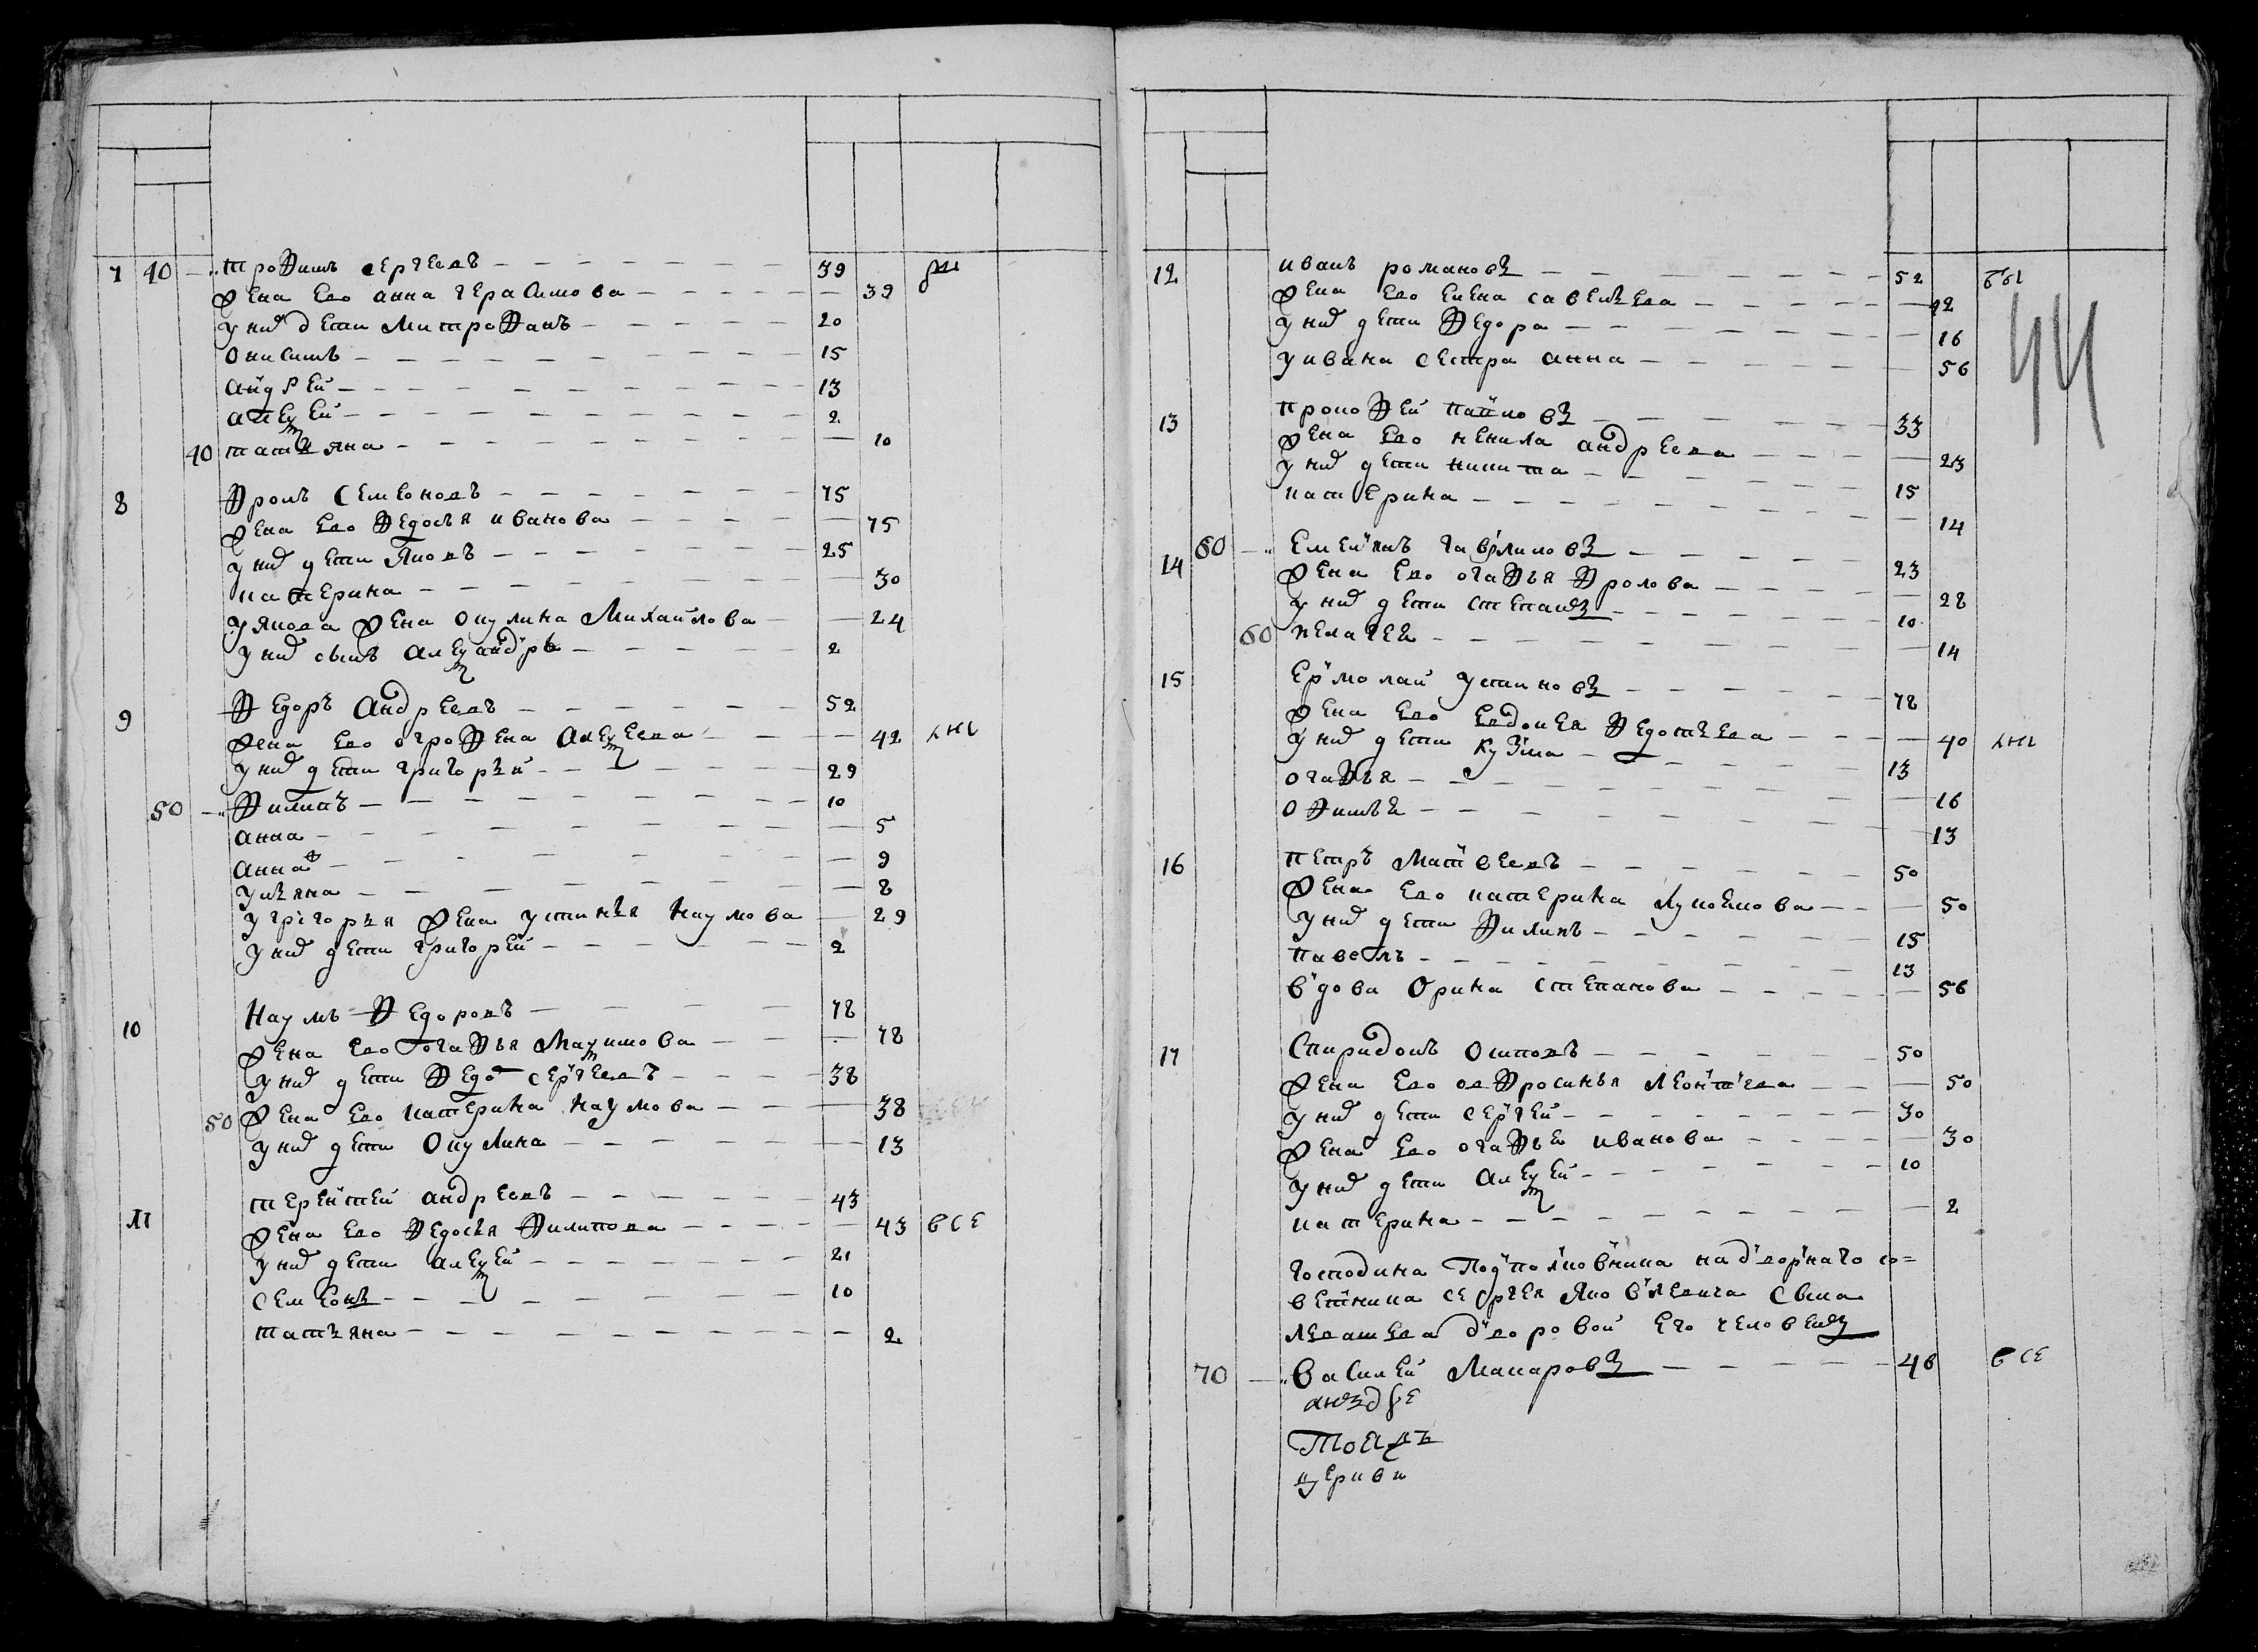 7 40 Трофимъ Сергеевъ 39
Жена Ево Анна Герасимова 39
у них дети Митрофанъ 20
Онисимъ 15
Андрей 13
Алексей 2
40 татьяна 10
8 Фролъ Семеоновъ 75
Жена Ево Федосья Иванова 75
у них дети Яковъ 25
катерина 30
у Якова Жена Окулина Михайлова 24
у них сынъ Александръ 2
9 Федоръ Андреевъ 52
Жена Ево огрофена Алексеева 42
у них дети григорьи 29
50 Филипъ 10
анна 5
анна 9
ульяна 8
у григорья Жена устинья Наумова 29
у них дети григорей 2
10 Наумъ Федоровъ 78
Жена Ево огафья Максимова 78
у них дети Федо Сергеевъ 38
50 Жена Ево катерина Наумова 38
у них дети Окулина 13
11 терентей андреевъ 43
Жена Ево Федосья Филипова 43 все
у них дети алексей 21
Семеонъ 10
татьяна 2
12 иванъ романовъ 52
Жена Ево Елена савельева 42
у них дети Федора 16
у ивана сестра анна 56
44
13 прокофей павловъ 33
Жена Ево ненила андреева 23
у них дети никита 15
катерина 14
14 60 Емельянъ гавриловъ 23
Жена Ево огафья Фролова 28
у них дети степанъ 10
60 пелагея 14
15 Ермолай устиновъ 78
Жена Ево Евдокея Федотьева 40
у них дети Кузма 13
огафья 16
офимья 13
16 петръ Матвеевъ 50
Жена Ево катерина Лукоянова 50
у них дети Филипъ 15
павелъ 13
вдова Орина степанова 56
17 Спиридонъ осиповъ 50
Жена Ево ефросинья леонтьева 50
у них дети сергей 30
Жена Ево огафья иванова 30
у них дети Алексей 10
катерина 2
Господина Подполковника надворнаго со=
ветника сергея яковлевича сына
левашева дворовой его человекъ
70 Василей Макаровъ 46 все
Тоя
церкви